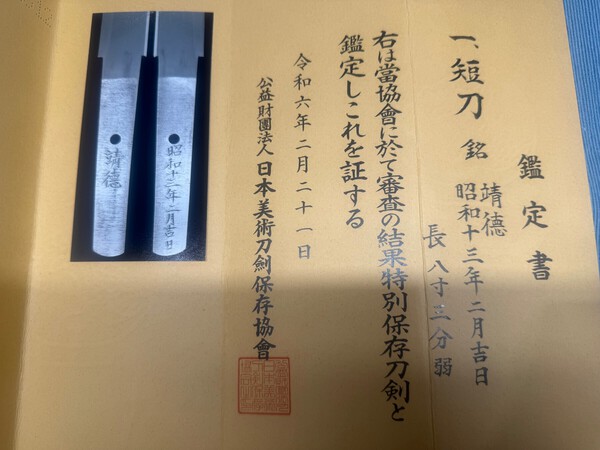 鑑定書
一、短刀 銘 靖德
昭和十三年二月吉日
長 八寸三分弱
右は當協會に於て審査の結果特別保存刀剣と
鑑定しこれを証する
令和六年二月二十一日
公益財團法人 日本美術刀劍保存協會
靖德
昭和十三年二月吉日